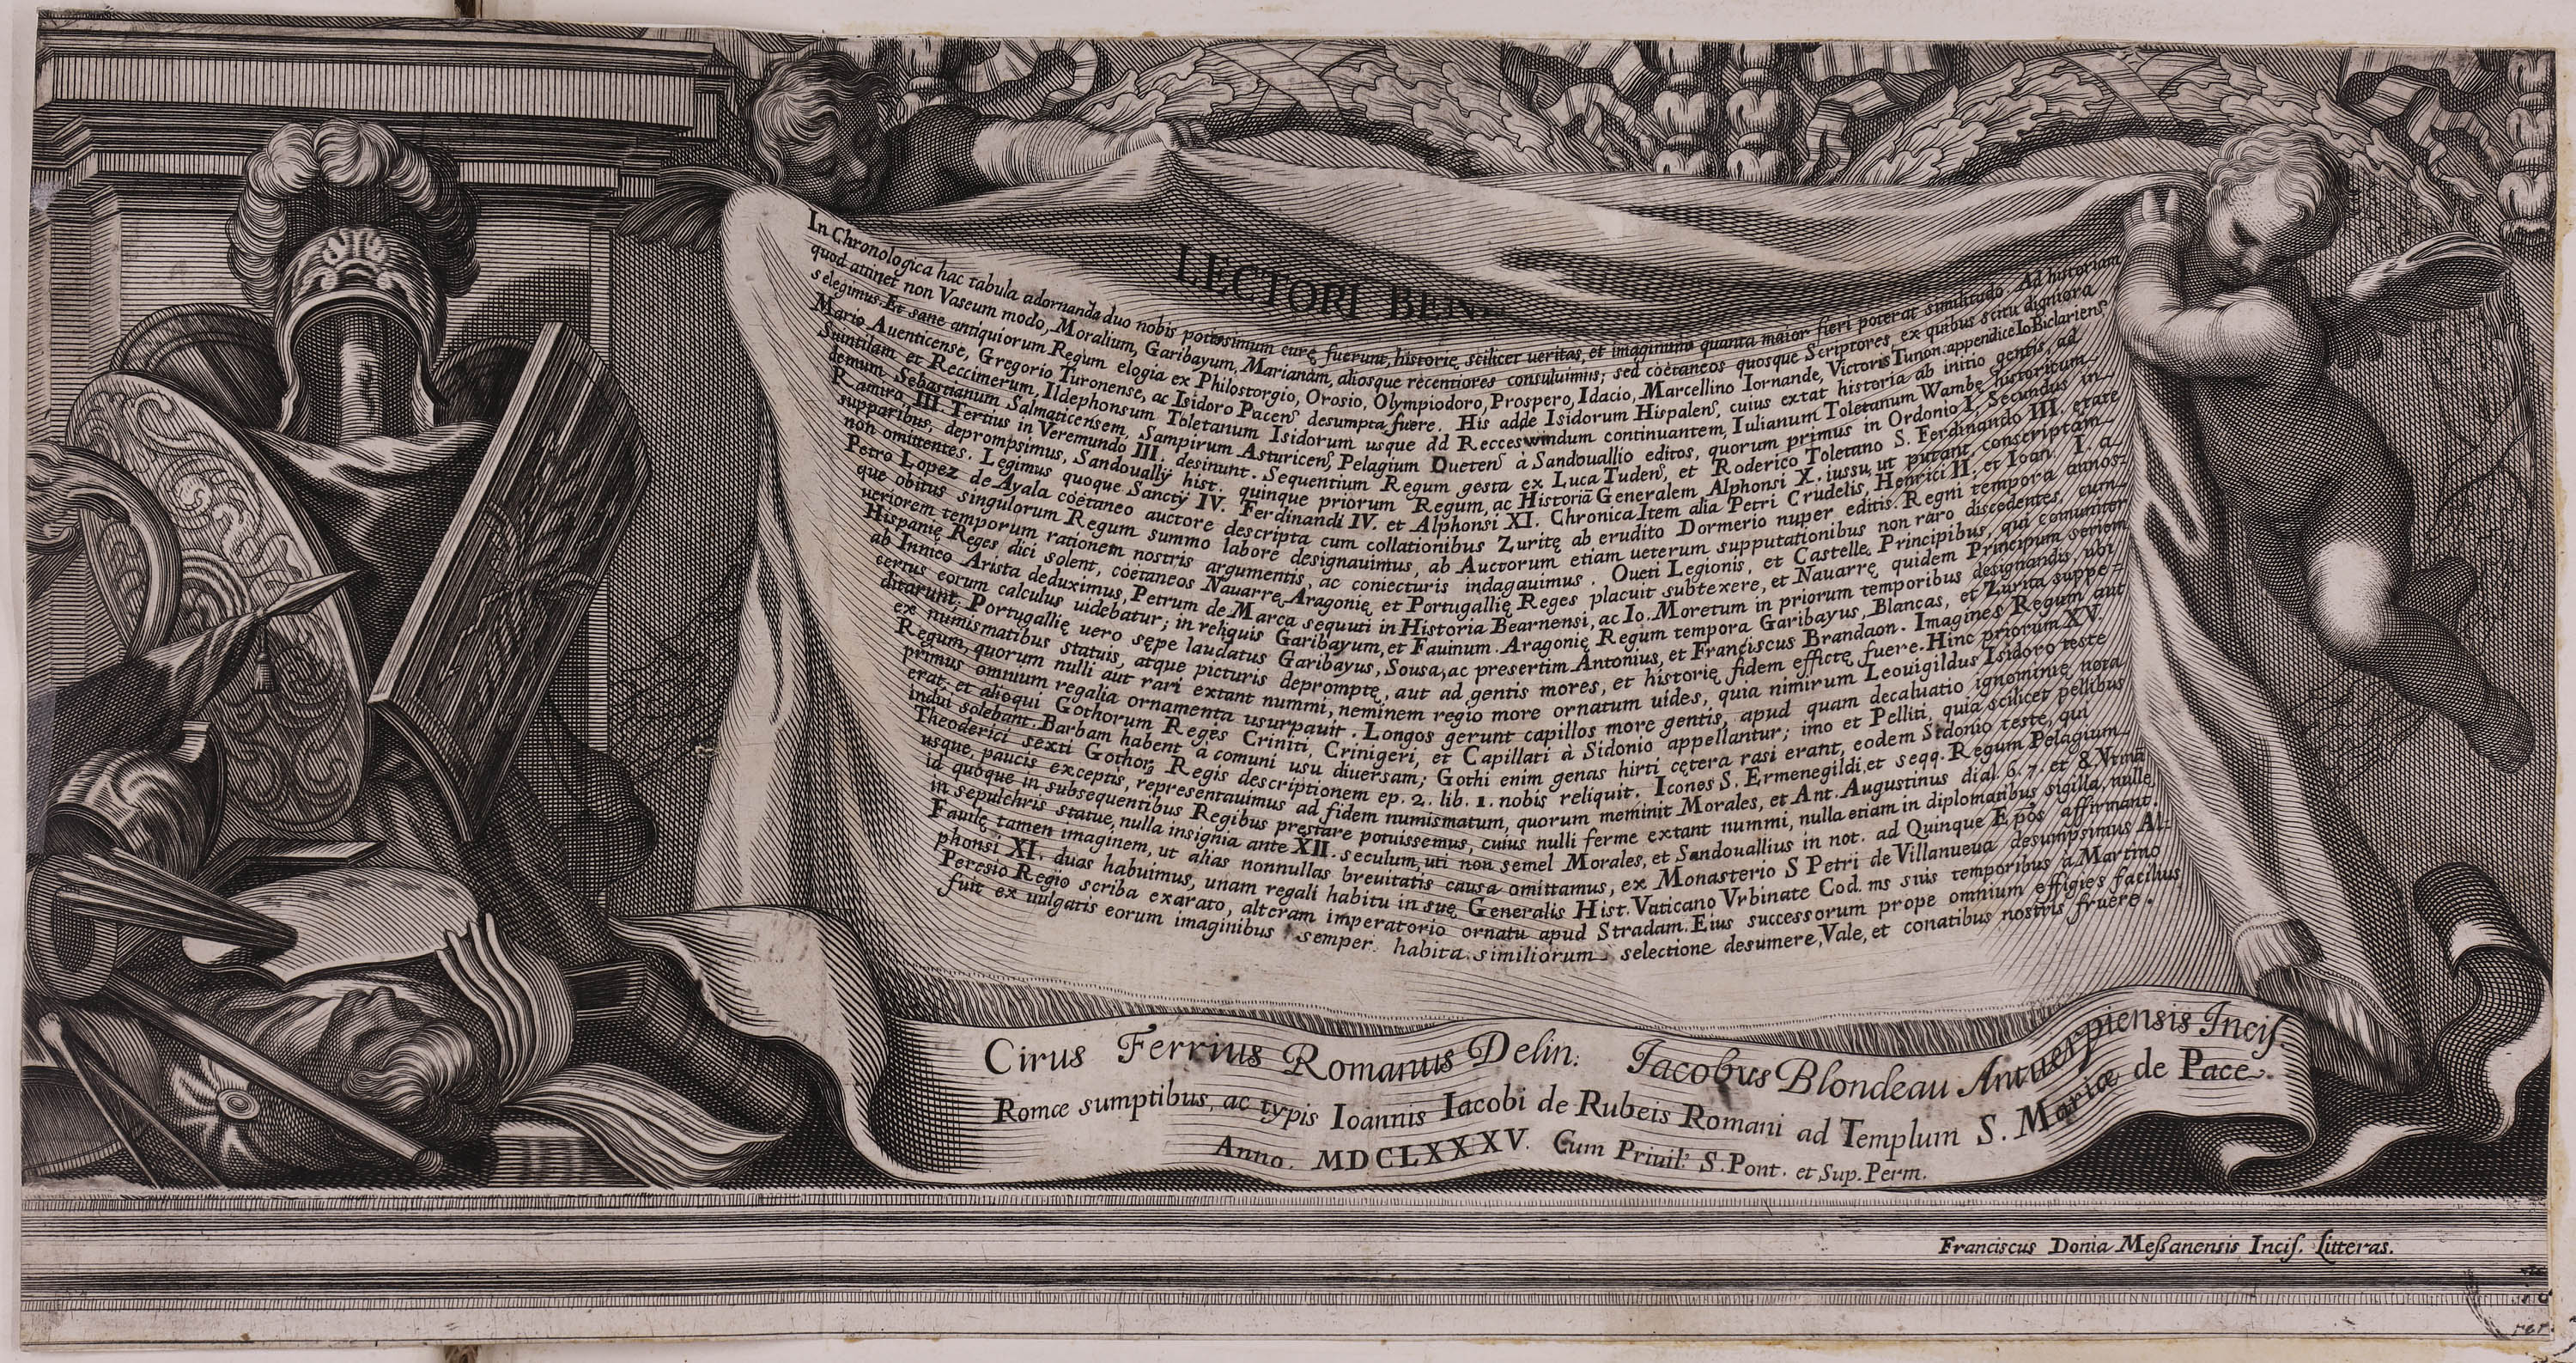 In Chronologica hac tabula adornanda duo nobis potissimum curę fuerunt, historię scilicet ueritas, et imaginum quanta maior fieri poterat similitudo. Ad historiam
quod attinet non Vaseum modo, Moralium, Garibayum, Marianam, aliosque recentiores consuluimus; sed coetaneos quosque Scriptores, ex quibus scitu digniora
selegimus. Et sane antiquiorum Regum elogia ex Philostorgio, Orosio, Olympiodoro, Prospero, Idacio, Marcellino Iornande, Victoris Tunon. appendice Io. Biclariens̃
Mario Auenticense, Gregorio Turonense, ac Isidoro Pacens̃ desumpta fuere. His adde Isidorum Hispalens̃, cuius extat historia ab initio gentis, ad
Suintilam et Reccimerum, Ildephonsum Toletanum Isidorum usque dd Recceswindum continuantem, Iulianum Toletanum Wambę historicum,
demum Sebastianum Salmaticensem, Sampirum Asturicens̃, Pelagium Ouetens̃ à Sandouallio editos, quorum primus in Ordonio I, Secundus in
Ramiro III. Tertius in Veremundo III. desinunt. Sequentium Regum gesta ex Luca Tudens̃, et Roderico Toletano S. Ferdinando III. ętate
supparibus, deprompsimus, Sandouallÿ hist. quinque priorum Regum, ac Historiã Generalem, Alphonsi X. iussu, ut putant, conscriptam
non omittentes. Legimus quoque Sanctÿ IV. Ferdinandi IV. et Alphonsi XI. Chronica. Item alia Petri Crudelis, Henrici II. et Ioan. I. a
Petro Lopez de Ayala coetaneo auctore descripta cum collationibus Zuritę ab erudito Dormerio nuper editis. Regni tempora annos-
que obitus singulorum Regum summo labore designauimus, ab Auctorum etiam ueterum supputationibus non raro discedentes, cum
ueriorem temporum rationem nostris argumentis, ac coniecturis indagauimus. Oueti Legionis, et Castellę Principibus, qui comuniter
Hispanię Reges dici solent, coetaneos Nauarrę Aragonię et Portugallię Reges placuit subtexere, et Nauarrę quidem Principum seriem
ab Innico Arista deduximus, Petrum de Marca sequuti in Historia Bearnensi, ac Io. Moretum in priorum temporibus designandis, ubi
certus eorum calculus uidebatur; in reliquis Garibayum, et Fauinum. Aragonię Regum tempora Garibayus, Blancas, et Zurita suppe-
ditarunt. Portugallię uero sępe laudatus Garibayus, Sousa, ac presertim Antonius, et Franciscus Brandaon. Imagines Regum aut
ex numismatibus statuis, atque picturis depromptę, aut ad gentis mores, et historię fidem efficte fuere. Hinc priorum XV.
Regum, quorum nulli aut rari extant nummi, neminem regio more ornatum uides, quia nimirum Leouigildus Isidoro teste
primus omnium regalia ornamenta usurpauit. Longos gerunt capillos more gentis, apud quam decaluatio ignominię nota
erat; et alioqui Gothorum Reges Criniti, Crinigeri, et Capillati à Sidonio appellantur; imo et Pelliti, quia scilicet pellibus
indui solebant. Barbam habent à comuni usu diuersam; Gothi enim genas hirti cętera rasi erant, eodem Sidonio teste, qui
Theoderici sexti Gothoꝝ Regis descriptionem ep. 2. lib. 1. nobis reliquit. Icones S. Ermenegildi, et seqq. Regum Pelagium
usque, paucis exceptis, representauimus ad fidem numismatum, quorum meminit Morales, et Ant. Augustinus dial. 6. 7. et 8. Vtinã
id quoque in subsequentibus Regibus prestare potuissemus, cuius nulli ferme extant nummi, nulla etiam in diplomatibus sigilla, nullę
in sepulchris statue, nulla insignia ante XII. seculum, uti non semel Morales, et Sandouallius in not. ad Quinque Ep̃os affirmant.
Fauilę tamen imaginem, ut alias nonnullas breuitatis causa omittamus, ex Monasterio S Petri de Villanueua desumpsimus Al-
phonsi XI. duas habuimus, unam regali habitu in suę Generalis Hist. Vaticano Vrbinate Cod. ms suis temporibus à Martino
Peresio Regio scriba exarato, alteram imperatorio ornatu apud Stradam. Eius successorum prope omnium effigies facilius
fuit ex uulgatis eorum imaginibus semper habita similiorum selectione desumere, Vale, et conatibus nostris fruere.
LECTORI BEN
Cirus Ferrius Romanus Delin. Iacobus Blondeau Antuerpiensis Incis.
Romæ sumptibus, ac typis Ioannis Iacobi de Rubeis Romani ad Templum S. Mariæ de Pace.
Anno. MDCLXXXV. Cum Priuil: S. Pont. et Sup. Perm.
Franciscus Donia Meßanensis Incis. Litteras.